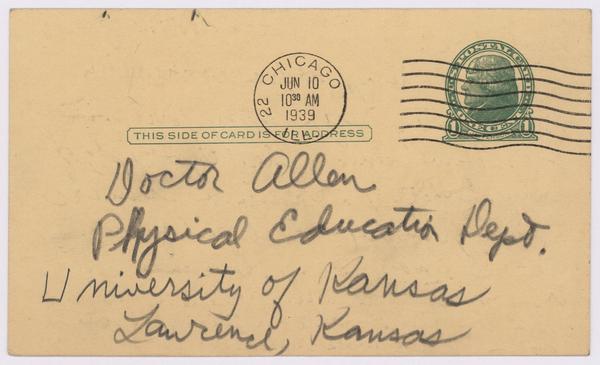 CHICAGO
22
JUN 10
10³⁰ AM
1939
ILL.
U.S. POSTAL CARD
1 ONE CENT 1
THIS SIDE OF CARD IS FOR ADDRESS
Doctor Allen
Physical Education Dept.
University of Kansas
Lawrence, Kansas